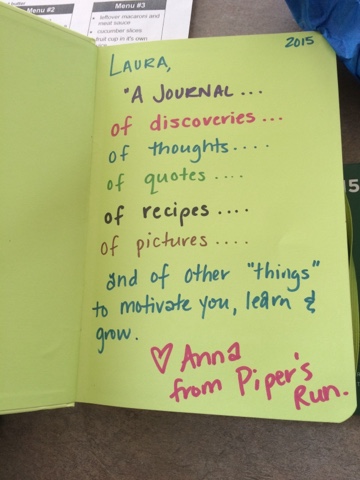 Menu #2
Menu #3
leftover macaroni and
meat sauce
cucumber slices
fruit cup in it's own
2015
LAURA,
"A JOURNAL...
of discoveries...
of thoughts....
of quotes ....
of recipes....
of pictures ....
and of other "things"
to motivate you, learn &
grow.
♡ Anna
from Piper's
Run.